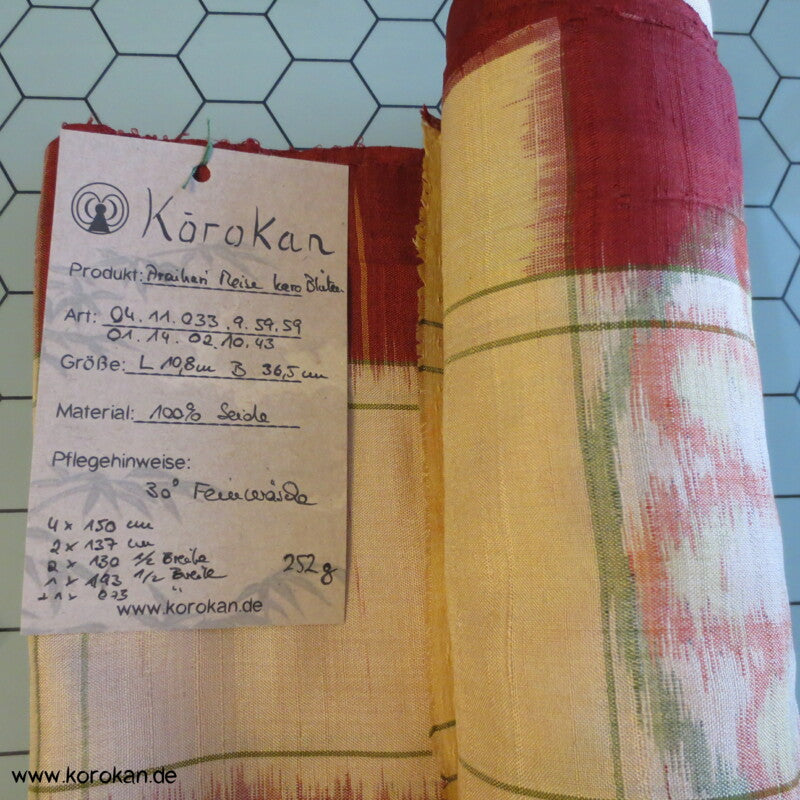 KōroKan
Produkt: Meise karo Blüten
Art: 04.11.033.9.59.59
01.14.02.10.43
Größe: L 10,8m B 36,5cm
Material: 100% Seide
Pflegehinweise:
30° Feinwäsche
4 x 150 cm
2 x 137 cm
2 x 130 1/2 Breite
1 x 1/2 Breite
252g
www.korokan.de
www.korokan.de